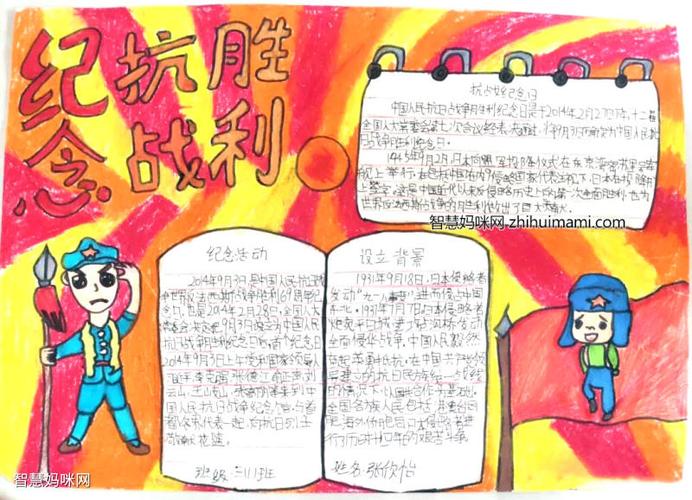 纪念
抗战
胜利
抗战纪念日
中国人民抗日战争胜利纪念日是于2014年2月27日下午,十二届
全国人大常委会第七次会议经表决通过,将9月3日确定为中国人民抗
日战争胜利纪念日。
1945年9月2日,日本向同盟
上举行,在包括中国在内9个
上签字。这是中国近代以来反侵略历史上的第一次全面胜利,也为
世界反法西斯战争的胜利作出了巨大贡献。
智慧妈咪网 zhihuimami.com
纪念活动
2014年9月3日是中国人民抗日战
争世界反法西斯战争胜利69周年纪
念日,也是2014年2月28日,全国人大
常委会决定把9月3日设立为中国人民
抗日战争胜利纪念日后首个纪念日
2014年9月3日上午党和国家领导人
习近平 李克强 张德江 俞正声 刘
云山 王岐山 张高丽等来到中
国人民抗日战争纪念馆,与首
都各界代表一起,向抗日烈士
敬献花篮。
班级:三(1)班
设立背景
1931年9月18日,日本侵略者
发动“九一八事变”,进而侵占中国
东北。1937年7月7日日本侵略者
炮轰宛平城,进攻卢沟桥,发动
全面侵华战争,中国人民毅然
奋起,英勇抵抗。在中国共产党倡
导建立的抗日民族统一战线
的情况下,以国共合作为基础,
全国各族人民包括
胞海外侨胞同日本侵略者进
行了历时十四年的艰苦斗争
姓名:张欣怡
智慧妈咪网
智慧妈咪网